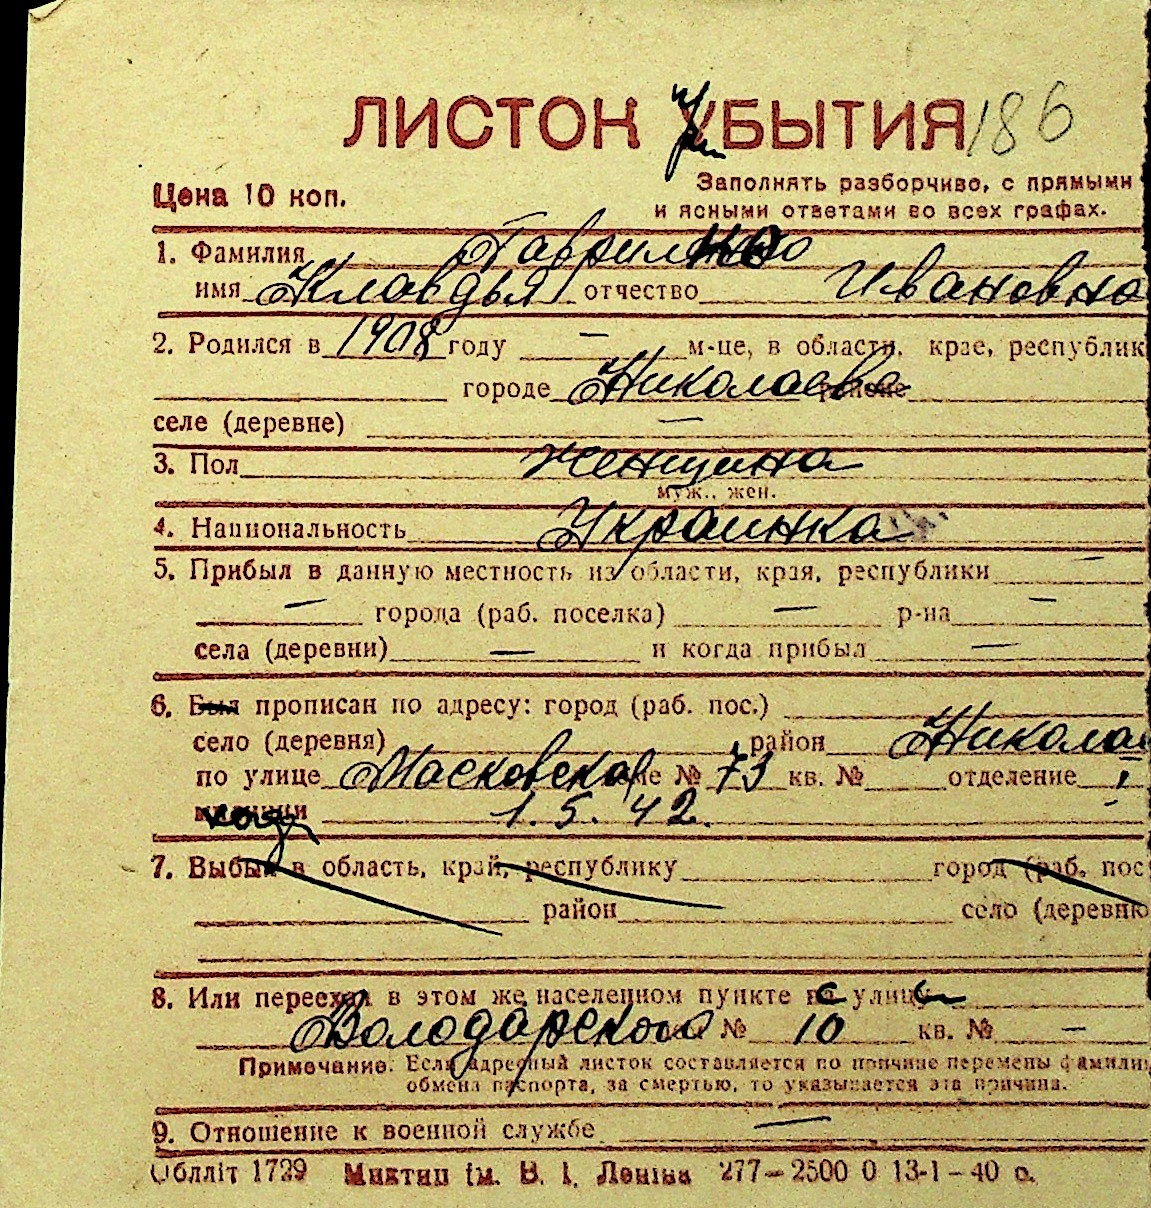 ЛИСТОК УБЫТИЯ 186
Цена 10 коп.
Заполнять разборчиво, с прямыми
и ясными ответами во всех графах.
1. Фамилия
имя Клавдья отчество Ивановна
2. Родился в 1908 году — м-це, в области, крае, республик
городе Николаеве районе
селе (деревне) —
3. Пол женщина
муж., жен.
4. Национальность Украинка
5. Прибыл в данную местность из области, края, республики —
— города (раб. поселка) — р-на —
села (деревни) — и когда прибыл —
6. Был прописан по адресу: город (раб. пос.)
село (деревня) район Никола
по улице Масковская № 73 кв. № отделение I
милиции 1. 5. 42.
7. Выбыл в область, край, республику город (раб. пос
район село (деревню
8. Или переехал в этом же населенном пункте с улицы
Володарского № 10 кв. № —
Примечание: Если адресный листок составляется по причине перемены фамилии,
обмена паспорта, за смертью, то указывается эта причина.
9. Отношение к военной службе —
Облліт 1729 Миктип ім. В. І. Леніна 277—2500 0 13-1-40 р.